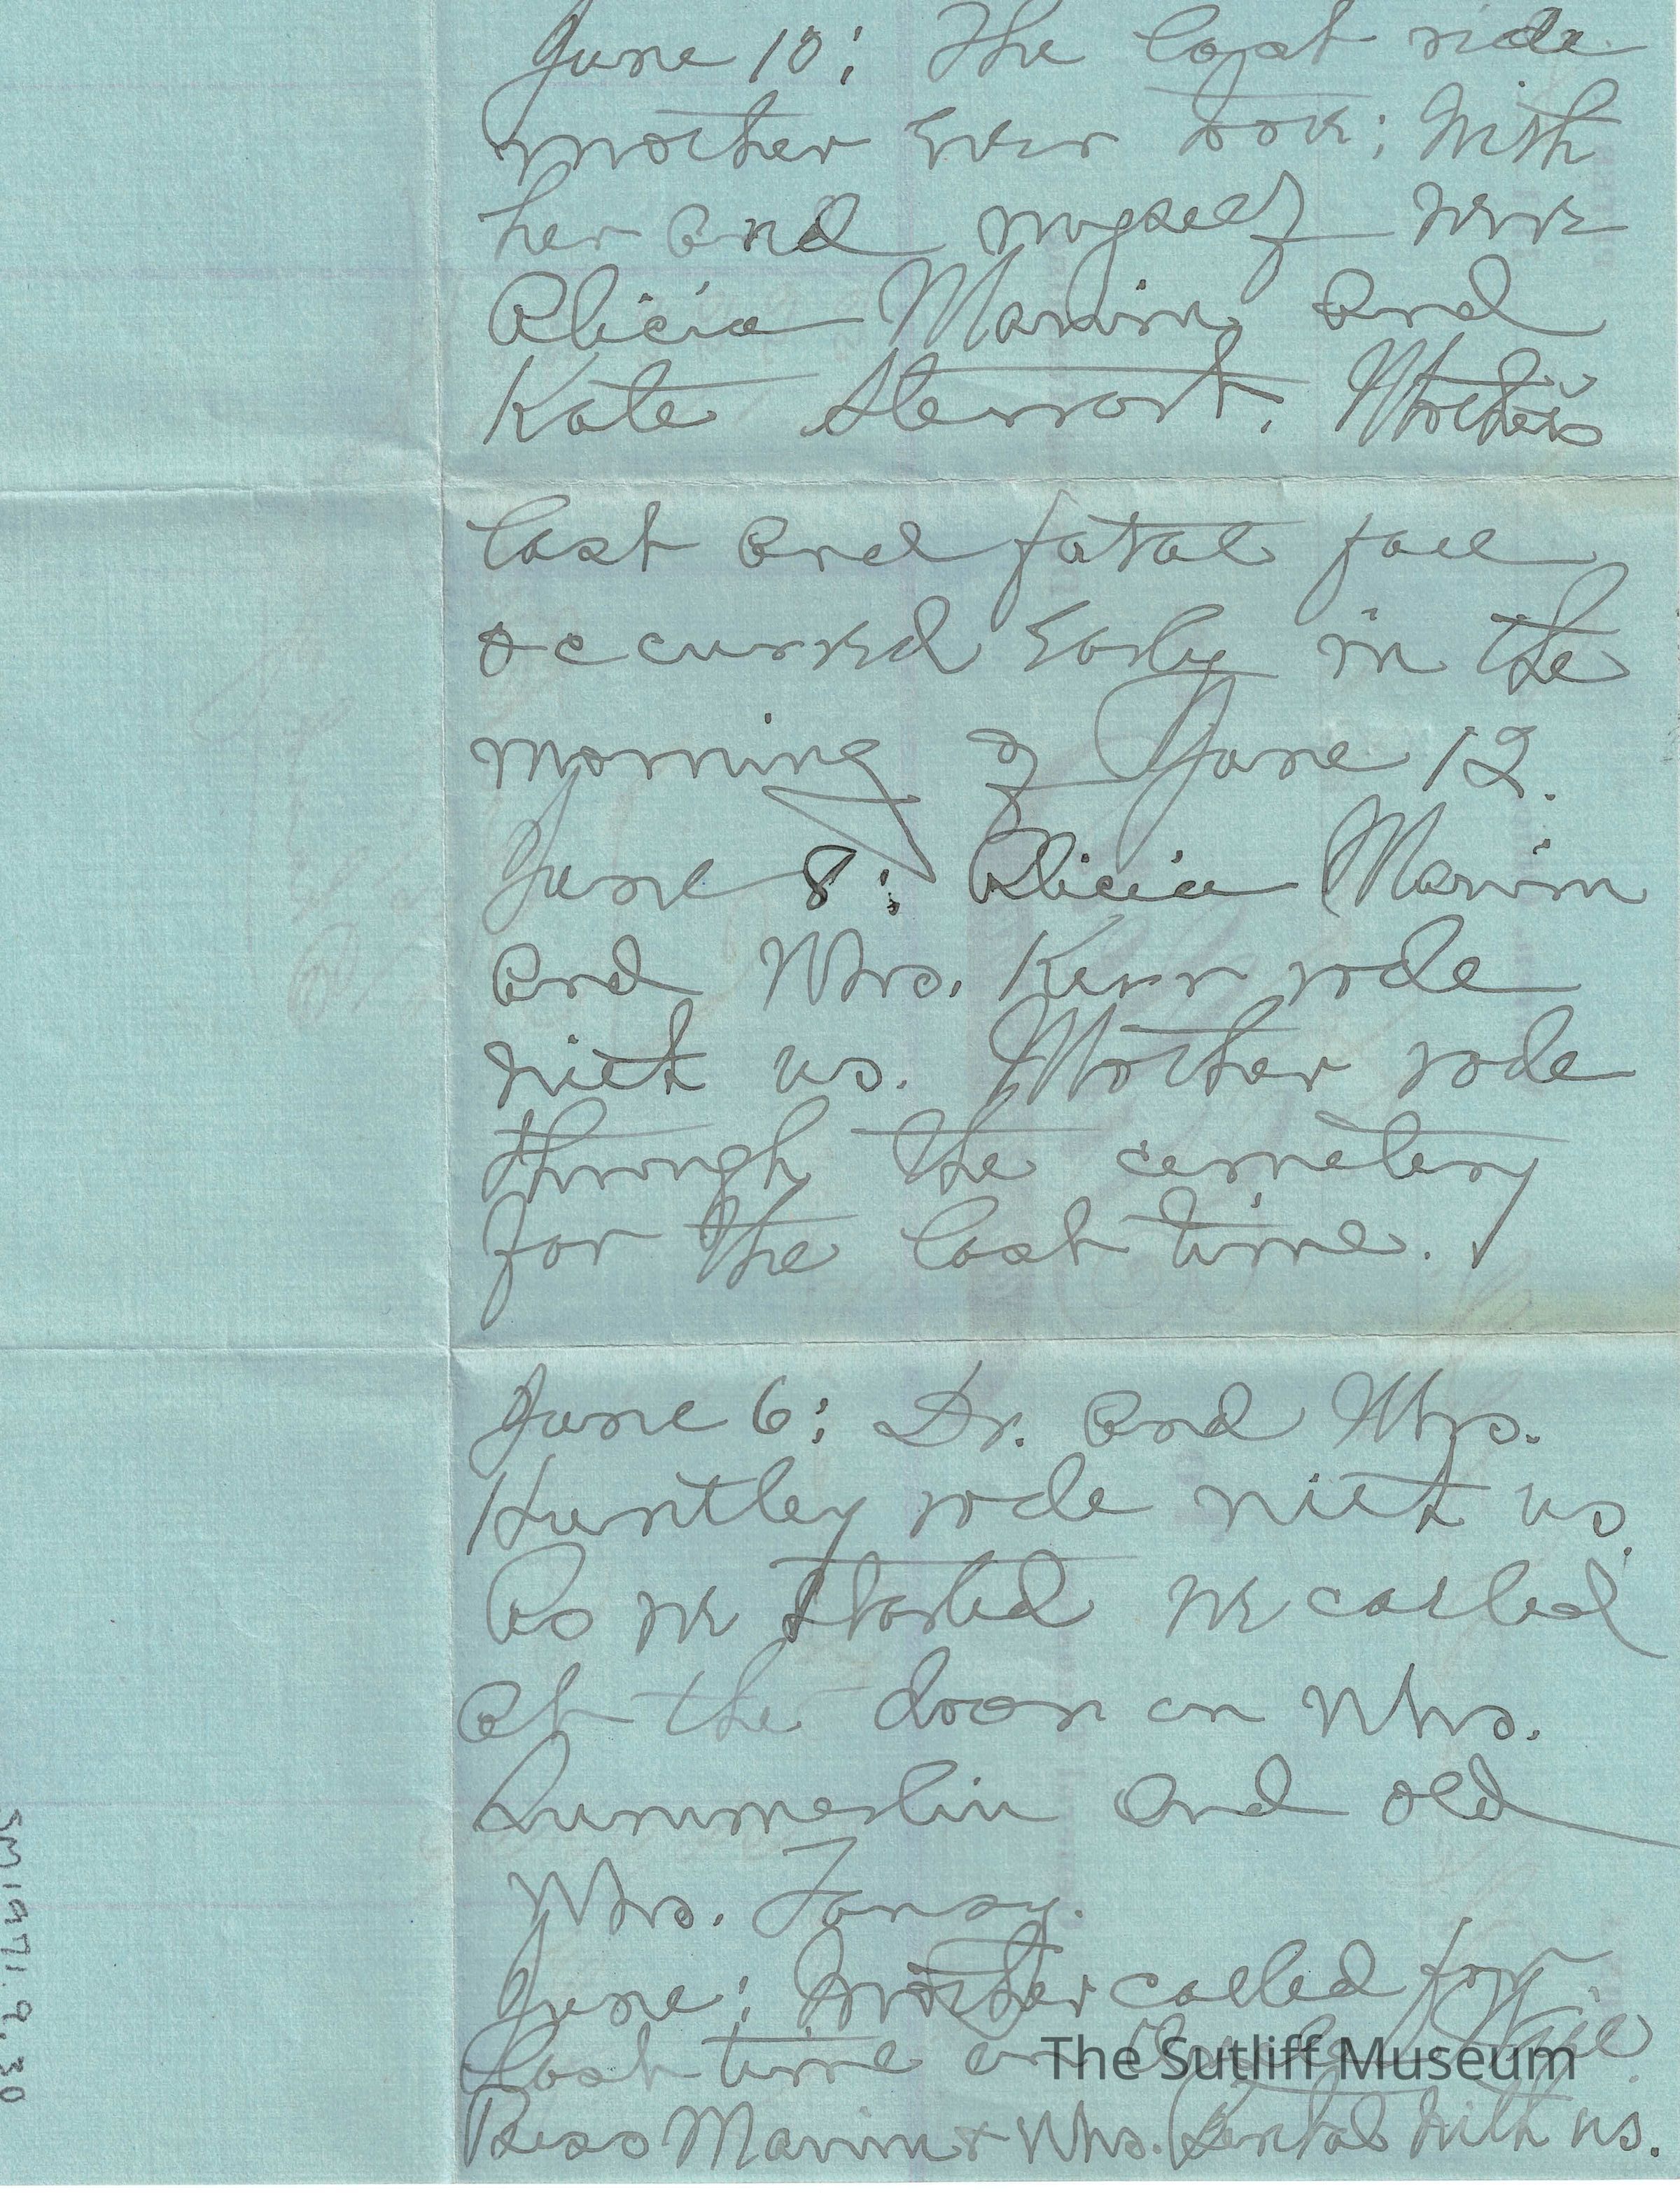 June 10: The last ride
mother ever took; With
her and myself were
Alicia Marvin and
Kate Sterrort. Mother's
last and fatal fall
occurred early in the
morning of June 12.
June 8: Alicia Marvin
and Mrs. Kerr rode
with us. Mother rode
through the cemetery
for the last time.
June 6: Dr. and Mrs.
Huntley rode with us.
As we started we called
at the door on Mrs.
Summerlin and old
Mrs. Tansy.
June: Mother called for
last time on
Bess Marvin + Mrs. with us.
The Sutliff Museum
SM1971.9.30